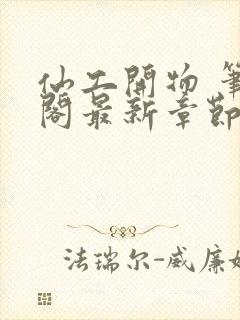 仙工開物 筆
閣最新章節
法瑞尔-威廉